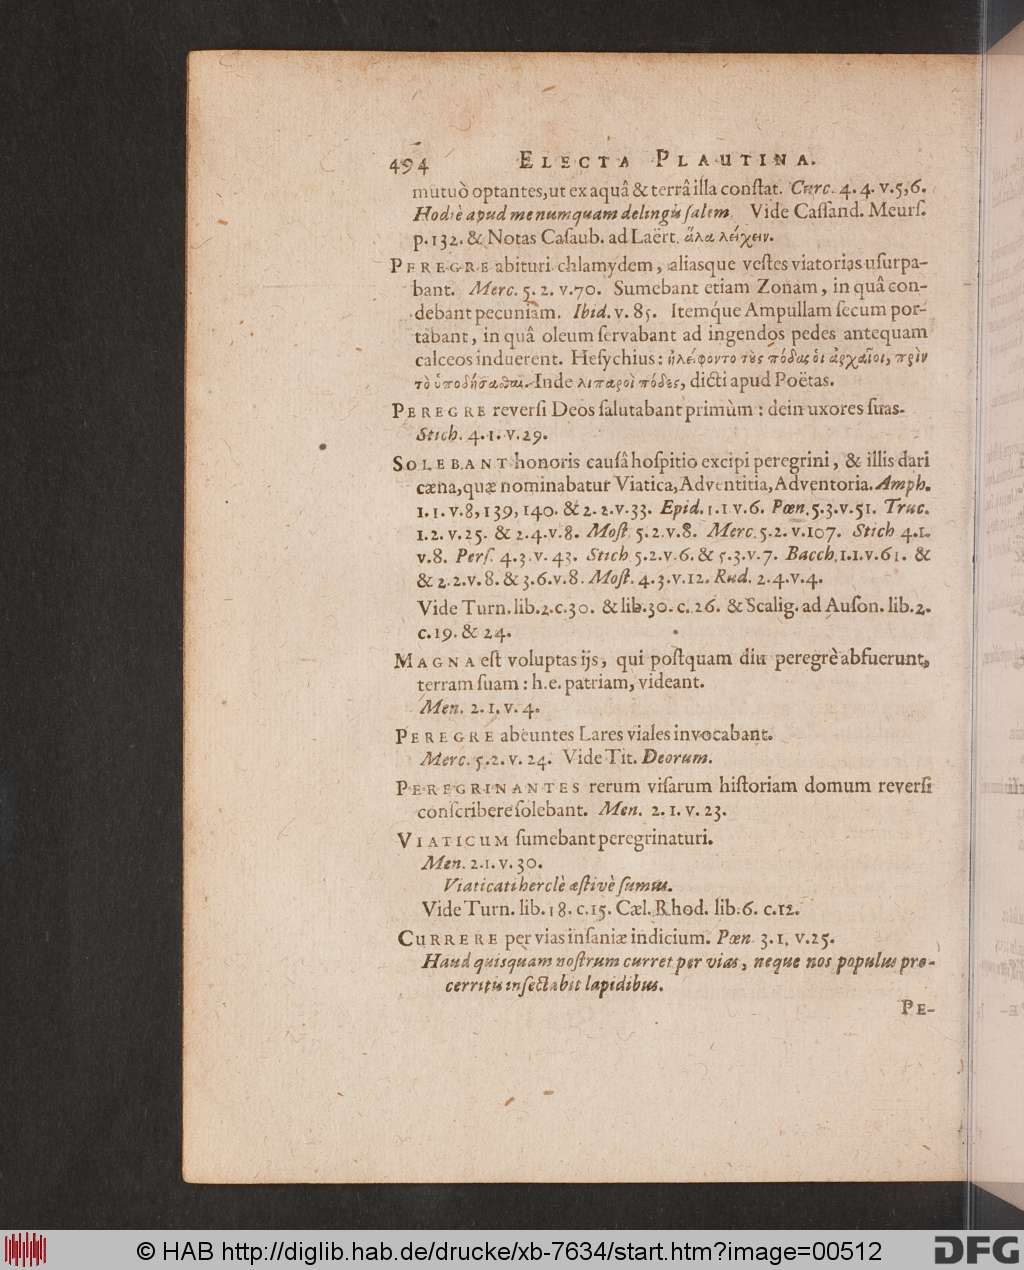 494 ELECTA PLAUTINA.
mutuò optantes, ut ex aquâ & terrâ illa conſtat. Curc. 4. 4. v. 5, 6.
Hodiè apud me numquam delinges ſalem. Vide Caſſand. Meurſ.
p. 132. & Notas Caſaub. ad Laërt. ἅλα λείχειν.
PEREGRE abituri chlamydem, aliasque veſtes viatorias uſurpa-
bant. Merc. 5. 2. v. 70. Sumebant etiam Zonam, in quâ con-
debant pecuniam. Ibid. v. 85. Itemq́ue Ampullam ſecum por-
tabant, in quâ oleum ſervabant ad ingendos pedes antequam
calceos induerent. Heſychius: ἠλείφοντο τοὺς πόδας ὁι ἀρχαῖοι, πρὶν
τὸ ὑποδήσασθαι. Inde λιπαροὶ πόδες, dicti apud Poëtas.
PEREGRE reverſi Deos ſalutabant primùm: dein uxores ſuas.
Stich. 4. 1. v. 29.
SOLEBANT honoris cauſâ hoſpitio excipi peregrini, & illis dari
cæna, quæ nominabatur Viatica, Adventitia, Adventoria. Amph.
1. 1. v. 8, 139, 140. & 2. 2. v. 33. Epid. 1. 1 v. 6. Pœn. 5. 3. v. 51. Truc.
1. 2. v. 25. & 2. 4. v. 8. Moſt. 5. 2. v. 8. Merc. 5. 2. v. 107. Stich 4. 1.
v. 8. Perſ. 4. 3. v. 43. Stich 5. 2. v. 6. & 5. 3. v. 7. Bacch. 1. 1. v. 61. &
& 2. 2. v. 8. & 3. 6. v. 8. Moſt. 4. 3. v. 12. Rud. 2. 4. v. 4.
Vide Turn. lib. 2. c. 30. & lib. 30. c. 26. & Scalig. ad Auſon. lib. 2.
c. 19. & 24.
MAGNA eſt voluptas ijs, qui poſtquam diu peregrè abfuerunt,
terram ſuam: h. e. patriam, videant.
Men. 2. 1. v. 4.
PEREGRE abeuntes Lares viales invocabant.
Merc. 5. 2. v. 24. Vide Tit. Deorum.
PEREGRINANTES rerum viſarum hiſtoriam domum reverſi
conſcribere ſolebant. Men. 2. 1. v. 23.
VIATICUM ſumebant peregrinaturi.
Men. 2. 1. v. 30.
Viaticati herclè æſtivè ſumus.
Vide Turn. lib. 18. c. 15. Cæl. Rhod. lib. 6. c. 12.
CURRERE per vias inſaniæ indicium. Pœn. 3. 1. v. 25.
Haud quisquam noſtrum curret per vias, neque nos populus pro-
cerritis inſectabit lapidibus.
PE-
© HAB http://diglib.hab.de/drucke/xb-7634/start.htm?image=00512
DFG